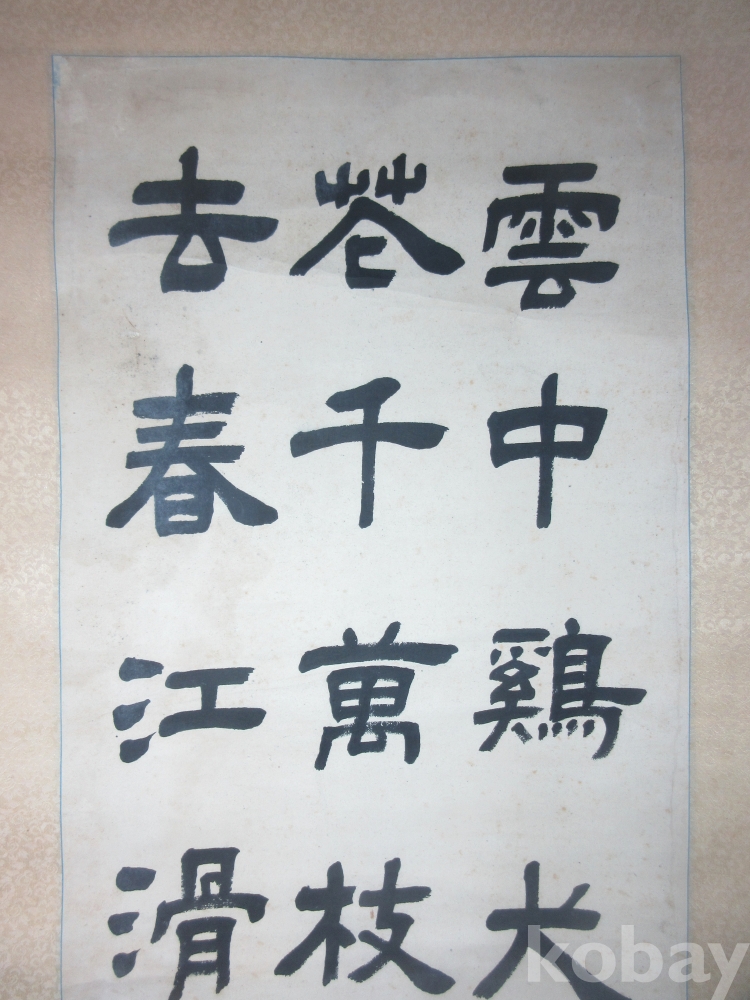 雲中鷄犬
花千萬枝
去春江滑
kobay